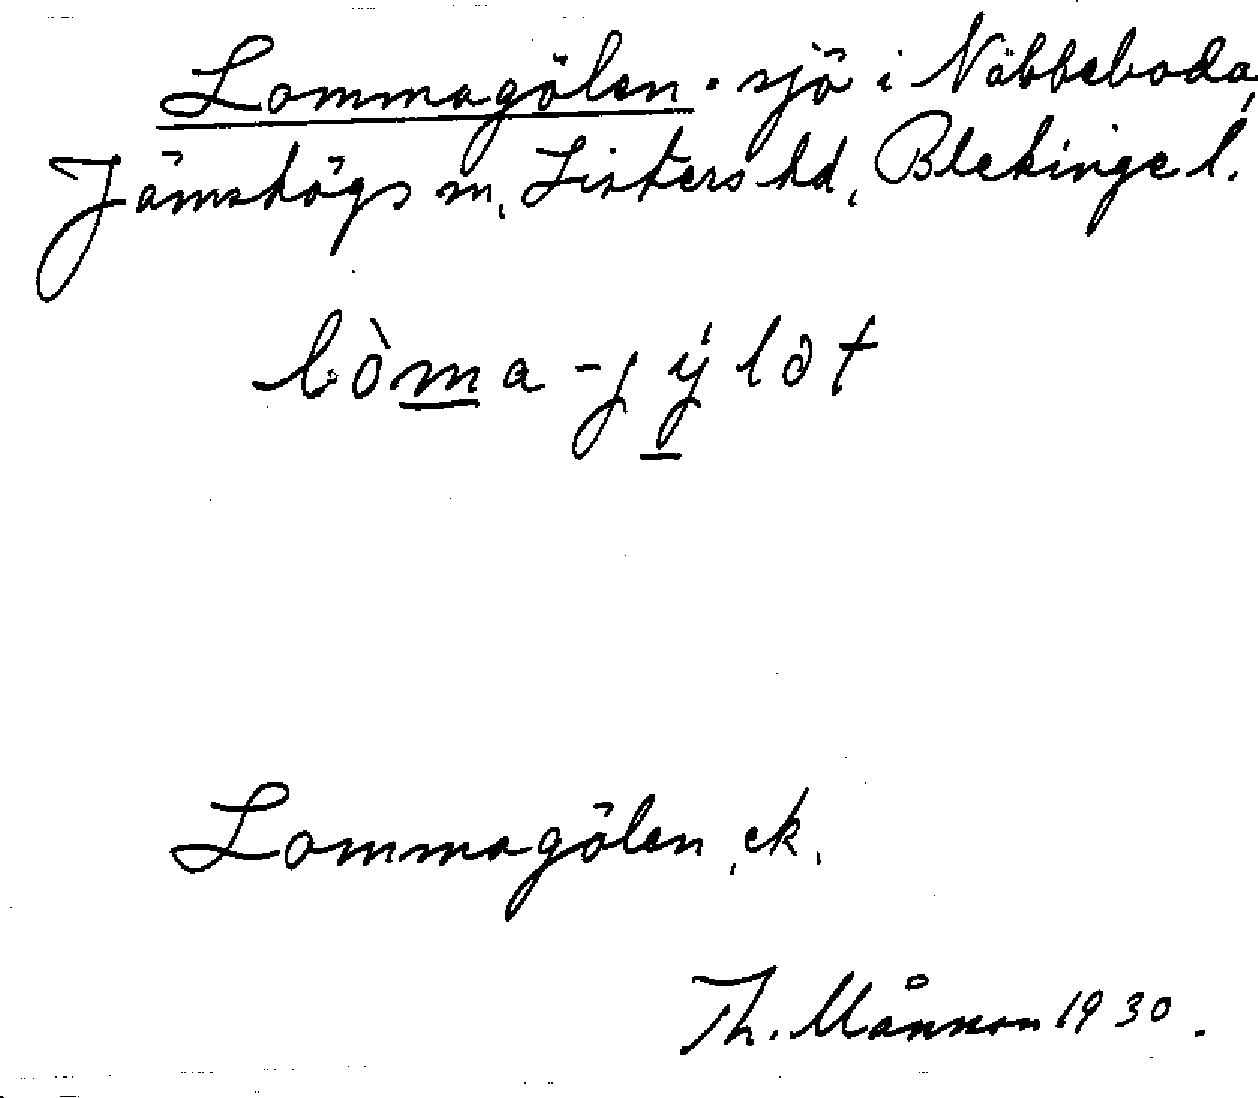 Lommagölen . sjö i Näbbeboda,
Jämshögs sn, Listers hd, Blekinge l.
lòma - jýlət
Lommagölen, ek.
Th. Månsson 1930.